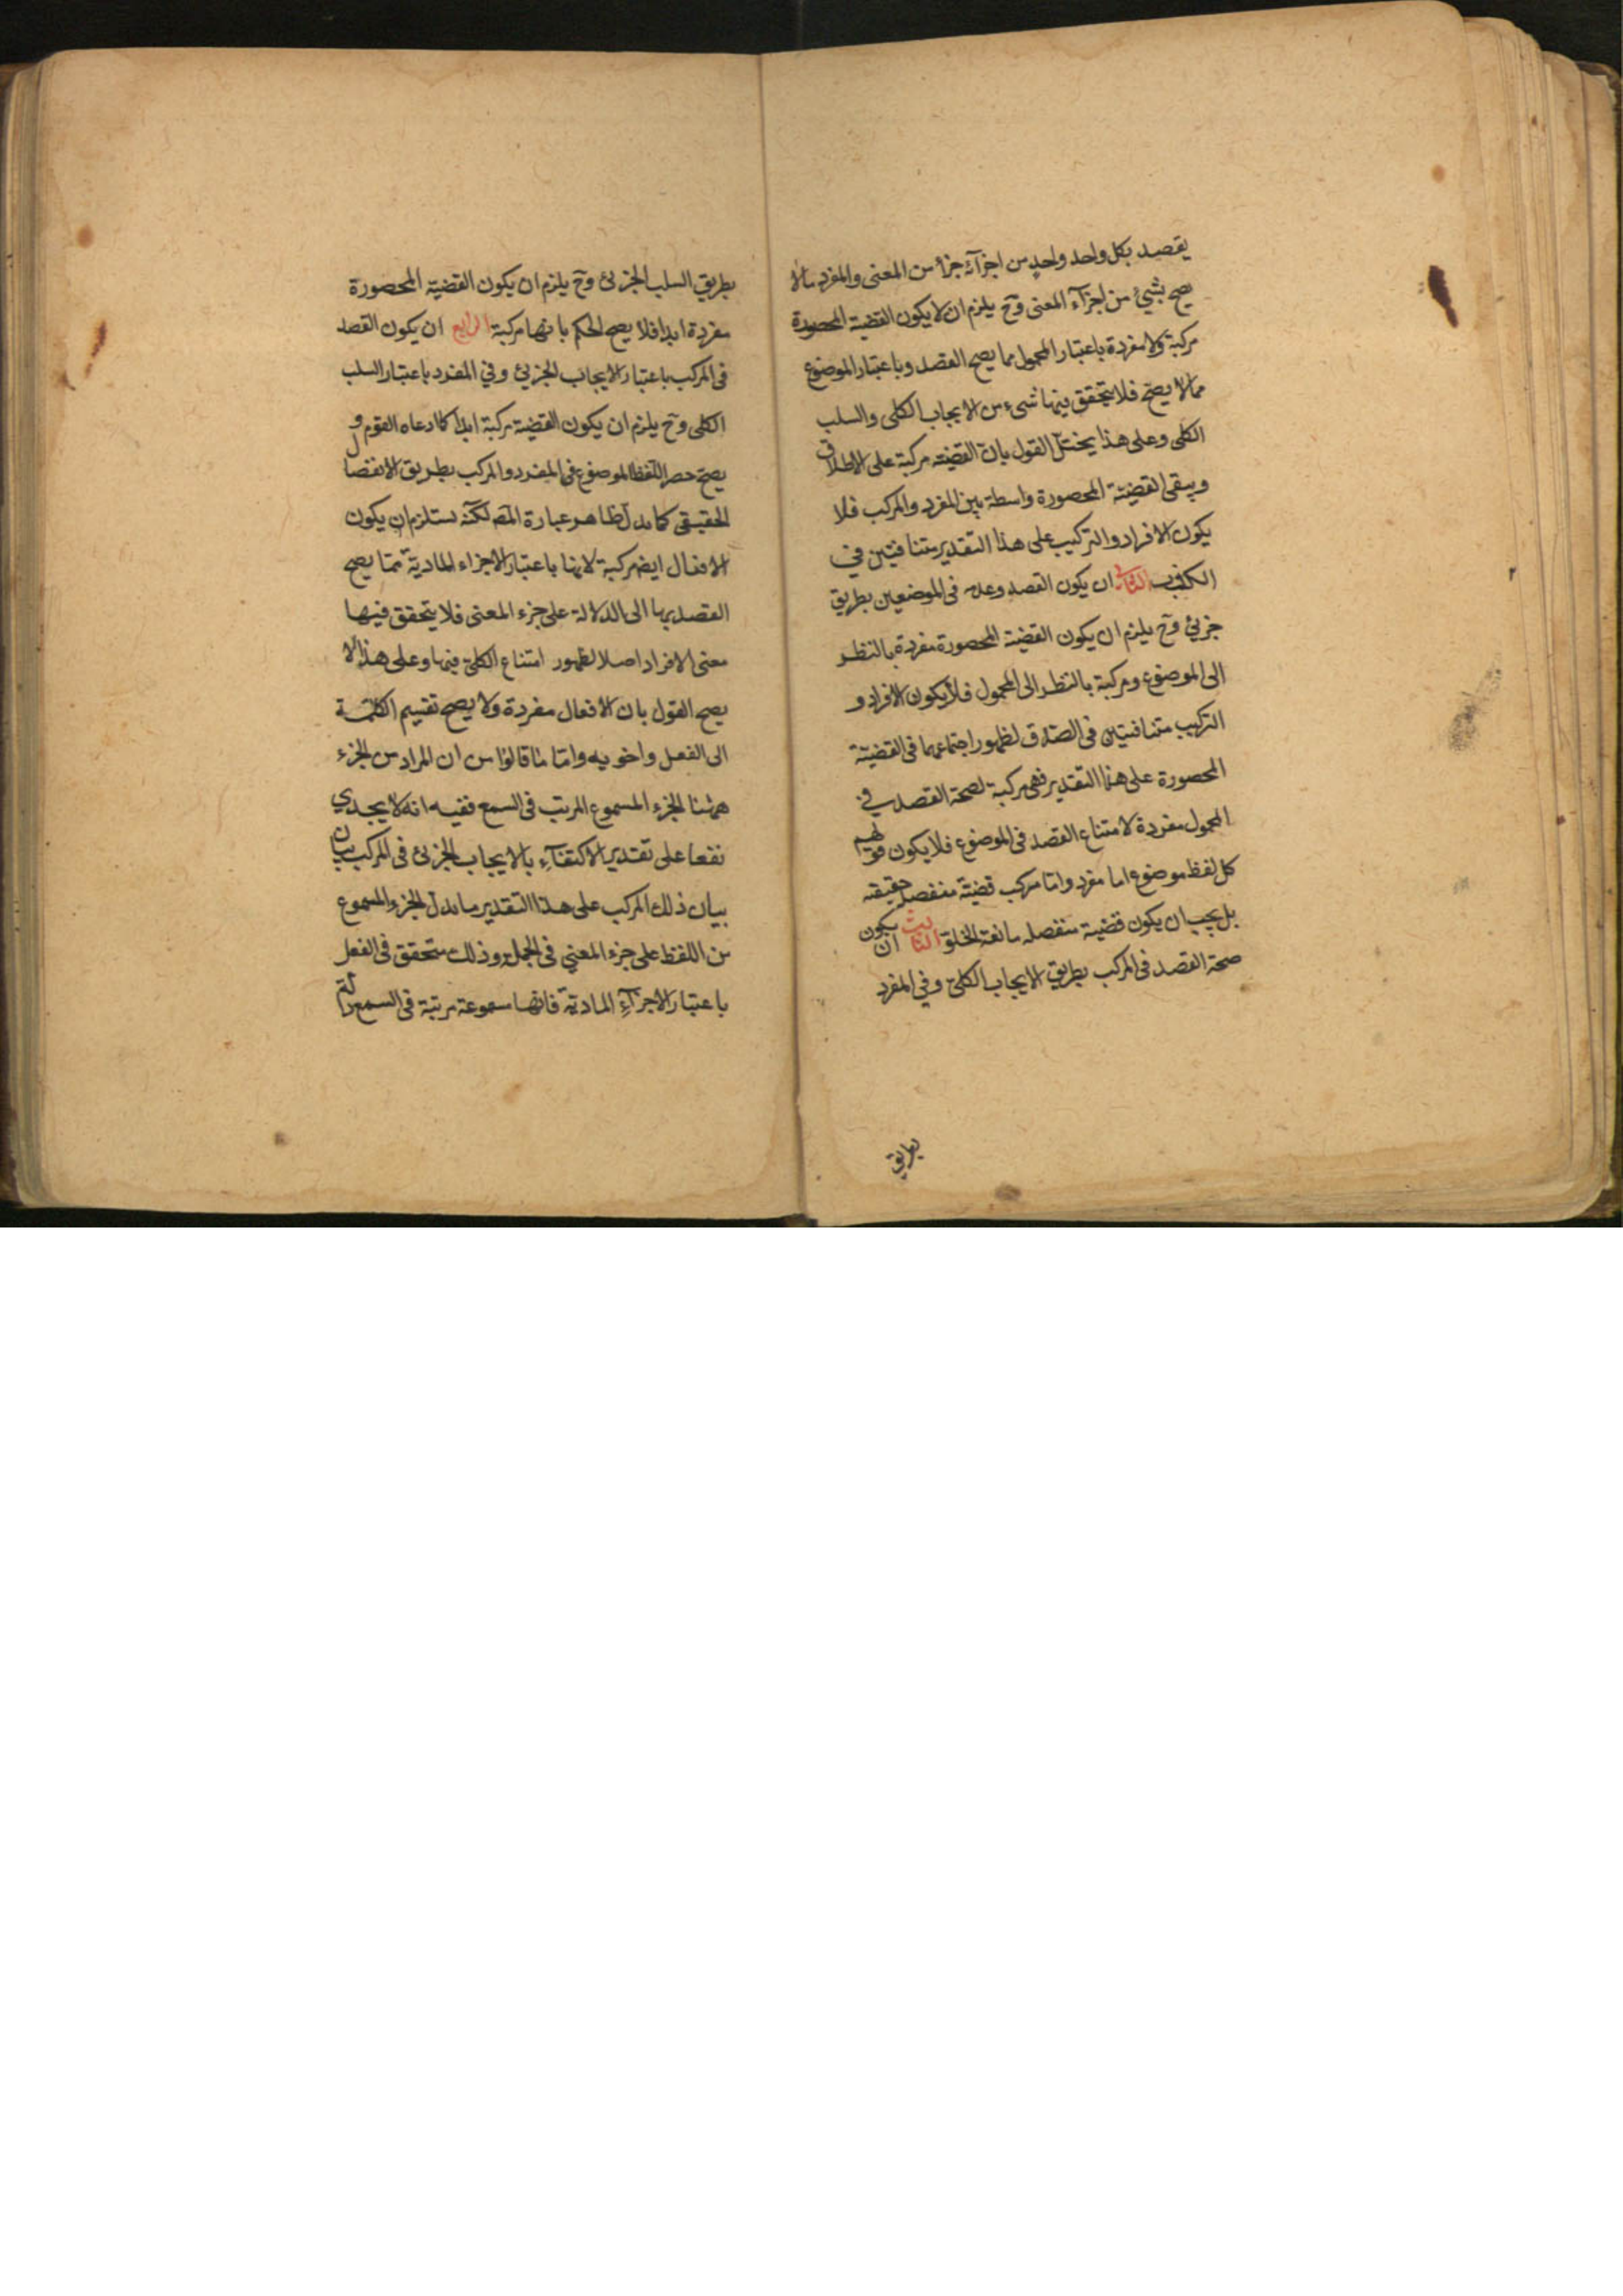 يقصد بكل واحد واحد من اجزآئه جزأ من المعنى والمفرد ما لا
يصح بشئ من اجزآء المعنى وح يلزم ان لا يكون القضية المحصورة
مركبة ولا مفردة باعتبار المحمول مما يصح القصد وباعتبار الموضوع
مما لا يصح فلا يتحقق فيها شىء من الايجاب الكلى والسلب
الكلى وعلى هذا يختل القول بان القضيه مركبة على الاطلاق
ويبقى القضية المحصورة واسطة بين المفرد والمركب فلا
يكون الافراد والتركيب على هذا التقدير متنافيتين في
الكذب الثانى ان يكون القصد وعدمه فى الموضعين بطريق
جزئ وح يلزم ان يكون القضية المحصورة مفردة بالنظر
الى الموضوع ومركبة بالنظر الى المحمول فلا يكون الافراد و
التركيب متنافيتين فى الصدق لظهور اجتماعهما فى القضية
المحصورة على هذا التقدير فهى مركبة لصحة القصد في
المحمول مفردة لامتناع القصد فى الموضوع فلا يكون قولهم
كل لفظ موضوع اما مفرد واما مركب قضية منفصله حقيقيه
بل يجب ان يكون قضية منفصله مانعة الخلو الثالث ان يكون
صحة القصد فى المركب بطريق الايجاب الكلى وفي المفرد
بطريق
بطريق السلب الجزئ وح يلزم ان يكون القضية المحصورة
مفردة ابدا فلا يصح الحكم بانها مركبة الرابع ان يكون القصد
فى المركب باعتبار الايجاب الجزئ وفي المفرد باعتبار السلب
الكلى وح يلزم ان يكون القضية مركبة ابدا كما دعاه القوم و
يصح حصر اللفظ الموضوع فى المفرد والمركب بطريق الانفصال
الحقيقى كما يدل ظاهر عبارة المص لكنه يستلزم ان يكون
الافعال ايض مركبة لانها باعتبار الاجزاء المادية مما يصح
القصد بها الى الدلالة على جزء المعنى فلا يتحقق فيها
معنى الافراد اصلا لظهور امتناع الكلى فيها وعلى هذا لا
يصح القول بان الافعال مفردة ولا يصح تقسيم الكلمة
الى الفعل واخويه واما ما قالوا من ان المراد من الجزء
ههنا الجزء المسموع المرتب فى السمع ففيه انه لا يجدي
نفعا على تقدير الاكتفآء بالايجاب الجزئ فى المركب بيان
بيان ذلك المركب على هذا التقدير ما يدل الجزء المسموع
من اللفظ على جزء المعنى فى الجملة وذلك متحقق فى الفعل
باعتبار الاجزآء المادية فانها مسموعة مرتبة فى السمع